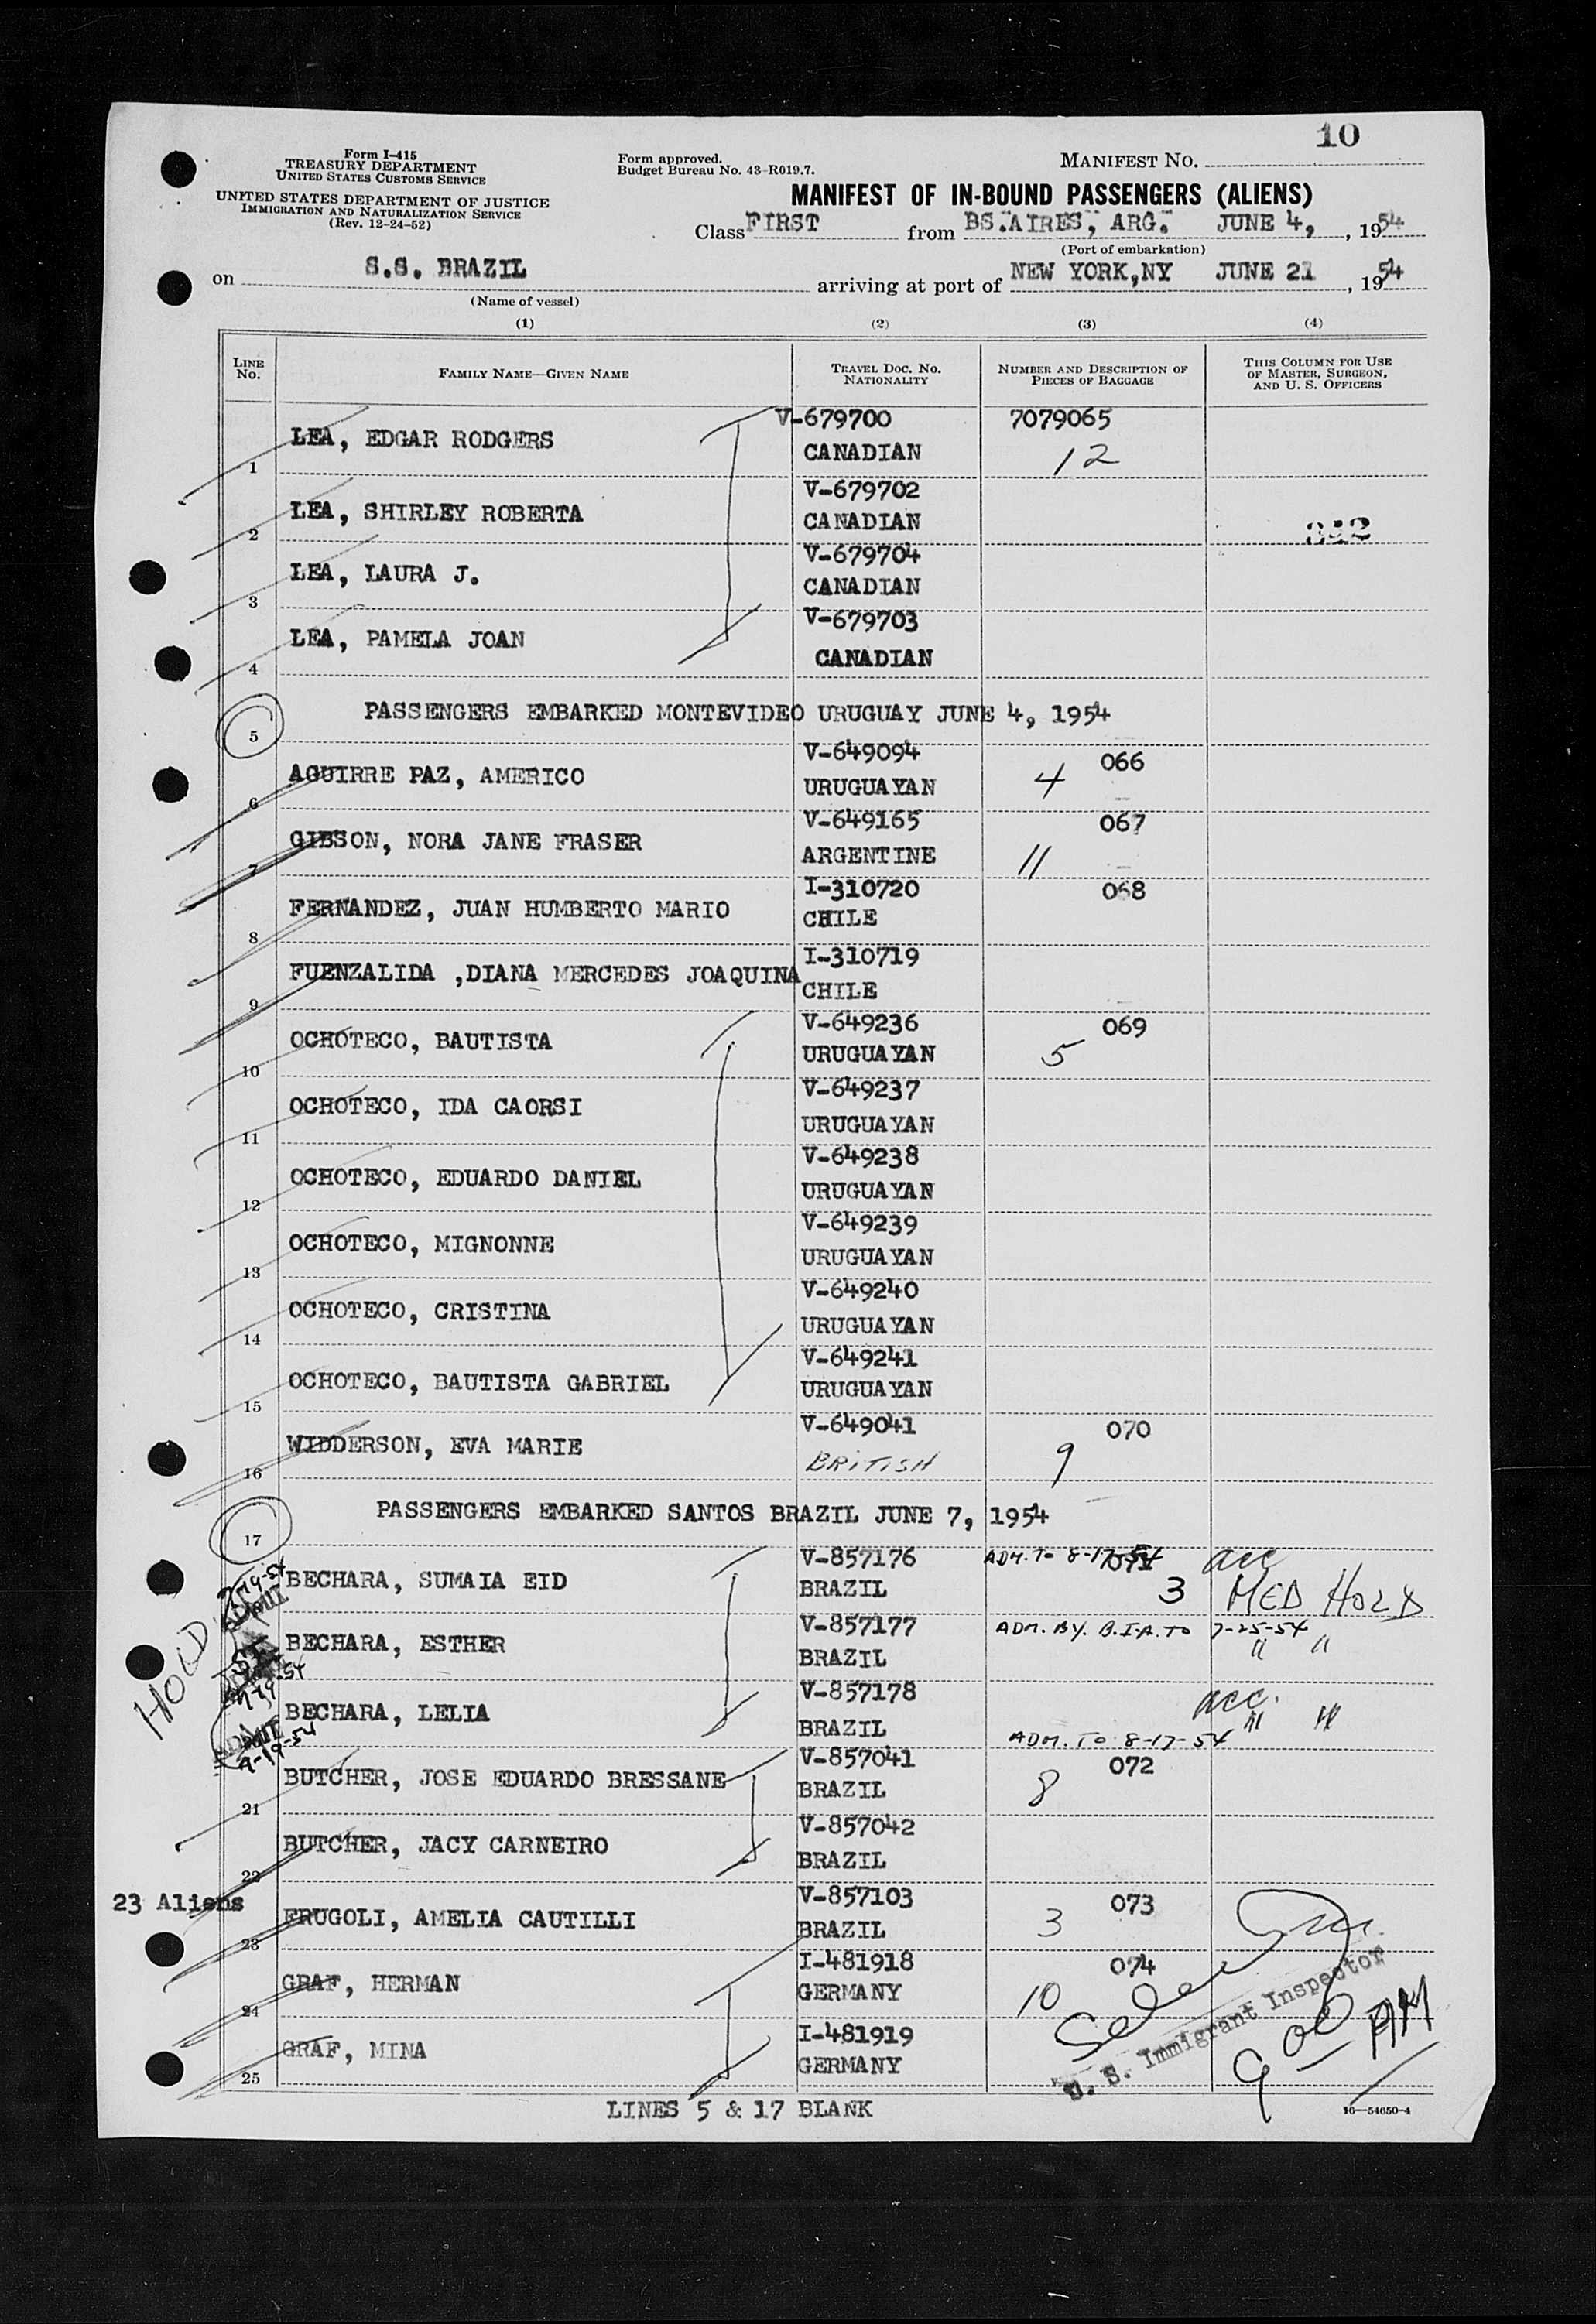 10
Form I-415
TREASURY DEPARTMENT
UNITED STATES CUSTOMS SERVICE
UNITED STATES DEPARTMENT OF JUSTICE
IMMIGRATION AND NATURALIZATION SERVICE
(Rev. 12-24-52)
Form approved.
Budget Bureau No. 43-R019.7.
MANIFEST NO.
MANIFEST OF IN-BOUND PASSENGERS (ALIENS)
Class FIRST from BS.AIRES, ARG. JUNE 4, , 1954
(Port of embarkation)
on S.S. BRAZIL arriving at port of NEW YORK,NY JUNE 21 , 1954
(Name of vessel)
(1) (2) (3) (4)
LINE NO. FAMILY NAME—GIVEN NAME TRAVEL DOC. NO. NATIONALITY NUMBER AND DESCRIPTION OF PIECES OF BAGGAGE THIS COLUMN FOR USE OF MASTER, SURGEON, AND U. S. OFFICERS
1 LEA, EDGAR RODGERS V-679700 CANADIAN 7079065 12
2 LEA, SHIRLEY ROBERTA V-679702 CANADIAN
3 LEA, LAURA J. V-679704 CANADIAN
4 LEA, PAMELA JOAN V-679703 CANADIAN
5 PASSENGERS EMBARKED MONTEVIDEO URUGUAY JUNE 4, 1954
6 AGUIRRE PAZ, AMERICO V-649094 URUGUAYAN 4 066
7 GIBSON, NORA JANE FRASER V-649165 ARGENTINE 11 067
8 FERNANDEZ, JUAN HUMBERTO MARIO I-310720 CHILE 068
9 FUENZALIDA ,DIANA MERCEDES JOAQUINA I-310719 CHILE
10 OCHOTECO, BAUTISTA V-649236 URUGUAYAN 5 069
11 OCHOTECO, IDA CAORSI V-649237 URUGUAYAN
12 OCHOTECO, EDUARDO DANIEL V-649238 URUGUAYAN
13 OCHOTECO, MIGNONNE V-649239 URUGUAYAN
14 OCHOTECO, CRISTINA V-649240 URUGUAYAN
15 OCHOTECO, BAUTISTA GABRIEL V-649241 URUGUAYAN
16 WIDDERSON, EVA MARIE V-649041 BRITISH 9 070
17 PASSENGERS EMBARKED SANTOS BRAZIL JUNE 7, 1954
HOLD
BECHARA, SUMAIA EID V-857176 BRAZIL ADM. TO 8-17-54 071 3 acc MED HOLD
BECHARA, ESTHER V-857177 BRAZIL ADM. BY. B.I.A. TO 7-25-54 " "
BECHARA, LELIA V-857178 BRAZIL ADM. TO 8-17-54 acc. " "
21 BUTCHER, JOSE EDUARDO BRESSANE V-857041 BRAZIL 8 072
22 BUTCHER, JACY CARNEIRO V-857042 BRAZIL
23 Aliens
23 FRUGOLI, AMELIA CAUTILLI V-857103 BRAZIL 3 073
24 GRAF, HERMAN I-481918 GERMANY 10 074
25 GRAF, MINA I-481919 GERMANY
U. S. Immigrant Inspector
9 00 AM
LINES 5 & 17 BLANK
16—54650-4